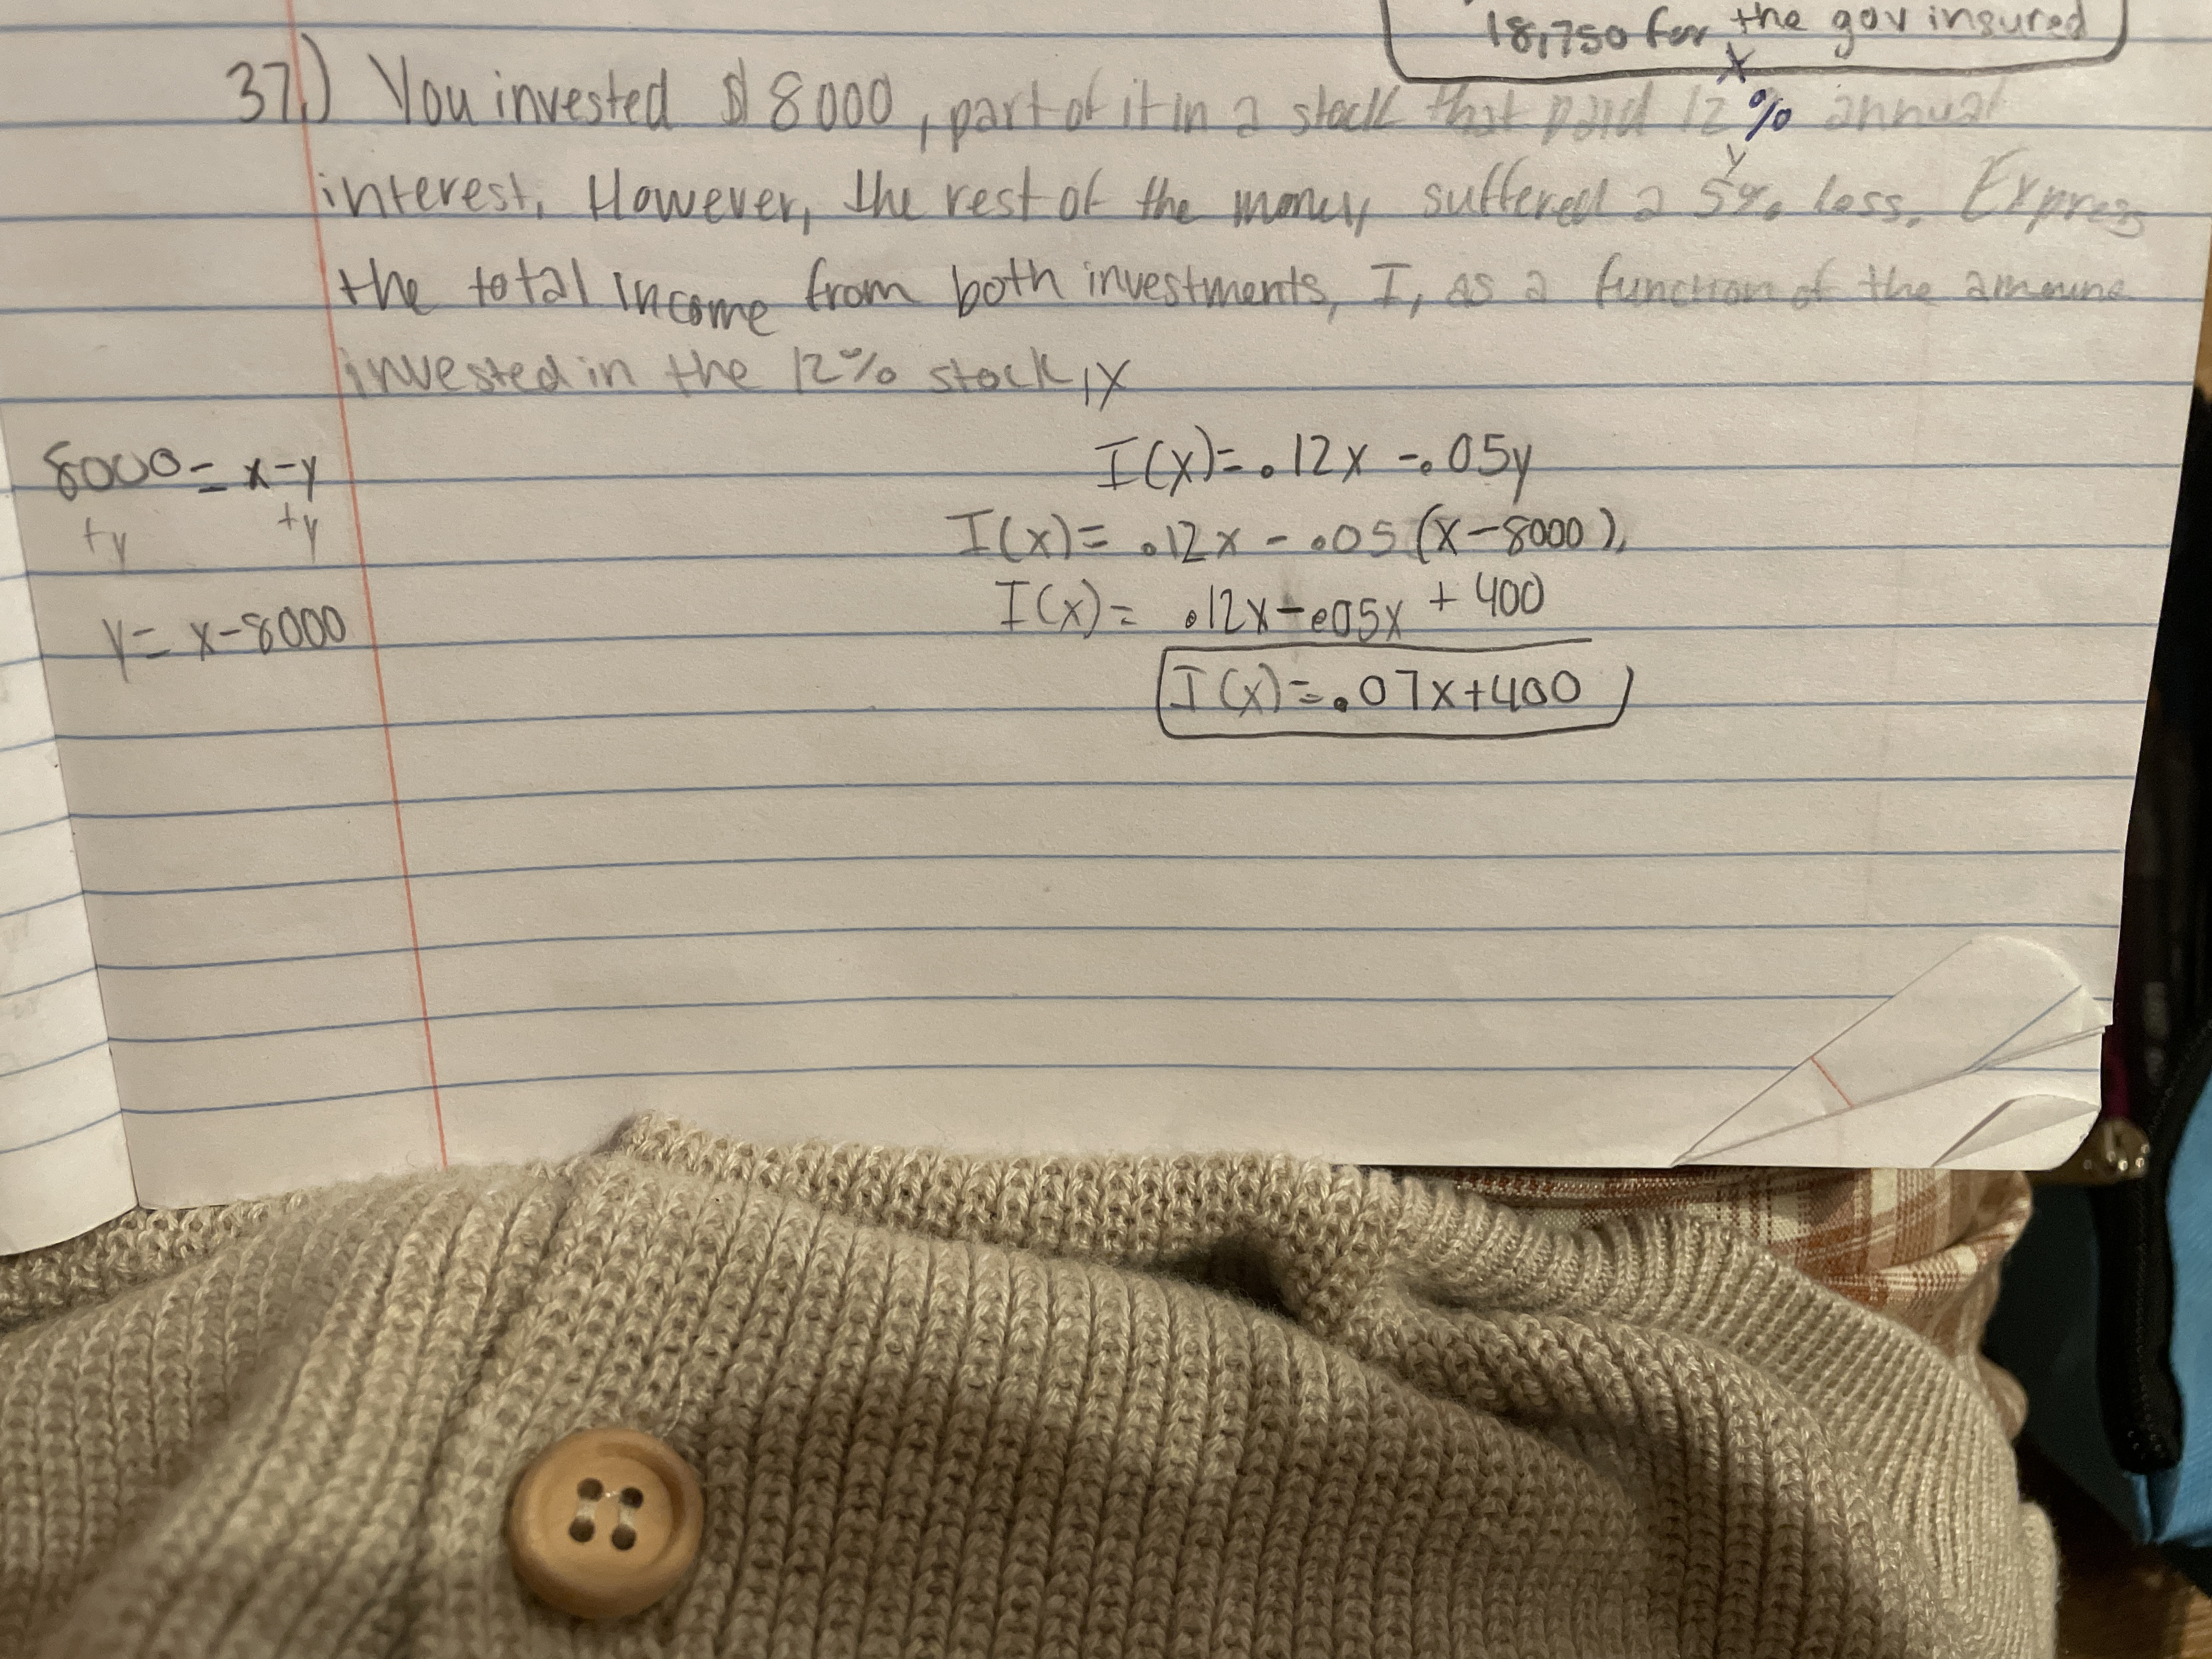 18,750 for the gov insured
37.) You invested $8000, part of it in a stock that paid 12% annual
x
interest. However, the rest of the money suffered a 5% loss. Express
y
the total income from both investments, I, as a function of the amount
invested in the 12% stock, x
8000 = x-y
+y +y
y = x-8000
I(x)=.12x -.05y
I(x)= .12x - .05(x-8000).
I(x)= .12x-.05x + 400
I(x)=.07x+400